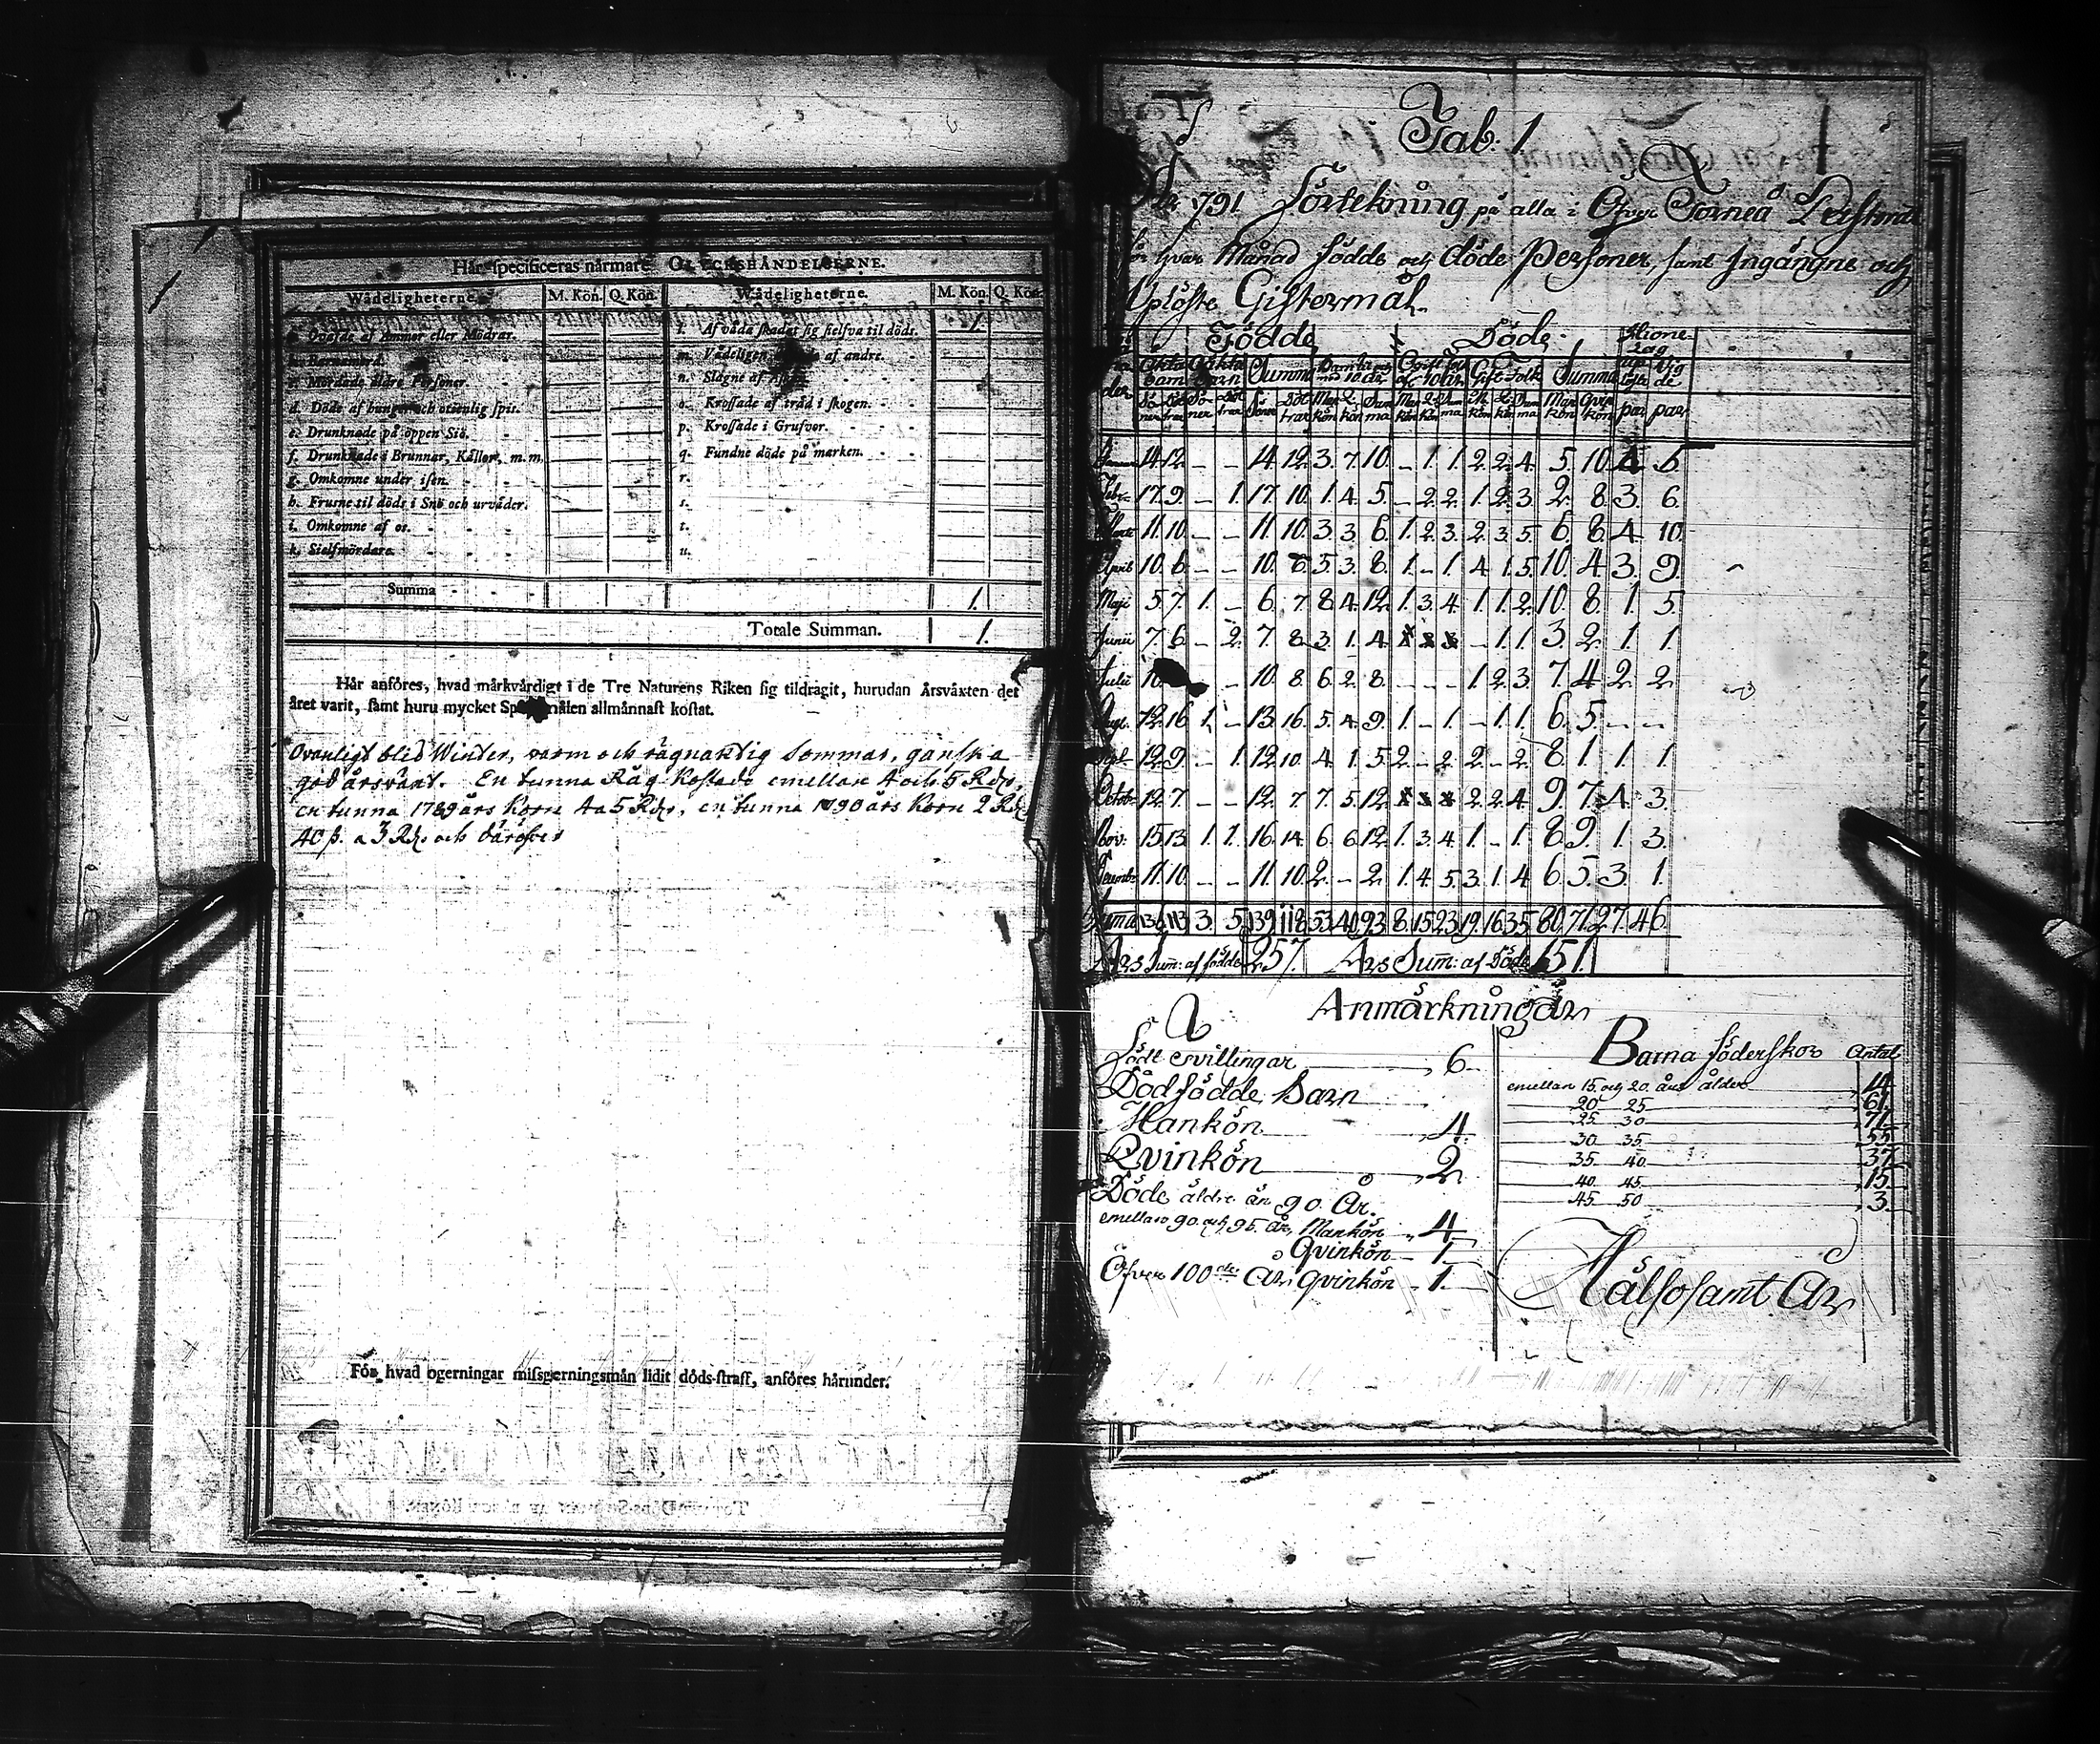 Här specificeras närmare OLYCKSHÄNDELSERNE.
Wådeligheterne. M. Kön. Q. Kön. Wådeligheterne. M. Kön. Q. Kön.
a. Qväfde af Ammor eller Mödrar. l. Af våda skadat sig sielfva til döds. 1.
b. Barnamord. m. Vådeligen af andre.
c. Mördade äldre Personer. n. Slagne af
d. Döde af hunger och otienlig spis. o. Krossade af träd i skogen.
e. Drunknade på öppen Siö. p. Krossade i Grufvor.
f. Drunknade i Brunnar, Källor, m. m. q. Fundne döde på marken.
g. Omkomne under isen. r.
h. Frusne til döds i Snö och urväder. s.
i. Omkomne af os. t.
k. Sielfmördare. u.
Summa 1.
Totale Summan. 1.
Här anföres, hvad märkvärdigt i de Tre Naturens Riken sig tildragit, hurudan Årsväxten det
året varit, samt huru mycket Spannmålen allmännast kostat.
Ovanligt blid Winter, varm och rägnaktig Sommar, ganska
god årsväxt. En tunna Råg kostade emellan 4 och 5 Rdr,
en tunna 1789 års Korn 4 a 5 Rdr, en tunna 1790 års Korn 2 Rdr
40 ß. a 3 Rdr och däröfver
För hvad ogerningar missgerningsmän lidit döds-straff, anföres härunder.
Tab: 1.
År 1791 Förtekning på alla i Öfver Torneå
för hvar Månad födde och döde Personer, samt Ingångne och
Uplöste Giftermål.
Födde Döde Hione-
lag
Äkta Oäkta Summa Ogift folk Gift Folk Summa
Barn Barn
14. 12. - - 14. 12. 3. 7. 10. - 1. 1. 2. 2. 4. 5. 10. 6.
Febr. 17. 9. - 1. 17. 10. 1. 4. 5. - 2. 2. 1. 2. 3. 2. 8. 3. 6.
Martii 11. 10. - - 11. 10. 3. 3. 6. 1. 2. 3. 2. 3. 5. 6. 8. 4. 10.
April 10. 6. - - 10. 6. 5. 3. 8. 1. - 1. 4. 1. 5. 10. 4. 3. 9.
Maji 5. 7. 1. - 6. 7. 8. 4. 12. 1. 3. 4. 1. 1. 2. 10. 8. 1. 5.
Junii 7. 6. - 2. 7. 8. 3. 1. 4. - 1. 1. 3. 2. 1. 1.
Julii 10. - 10. 8. 6. 2. 8. - - - 1. 2. 3. 7. 4. 2. 2.
Aug. 12. 16. 1. - 13. 16. 5. 4. 9. 1. - 1. - 1. 1. 6. 5. - -
Sept. 12. 9. - 1. 12. 10. 4. 1. 5. 2. - 2. 2. - 2. 8. 1. 1. 1.
Octob. 12. 7. - - 12. 7. 7. 5. 12. 2. 2. 4. 9. 7. 4. 3.
Nov. 15. 13. 1. 1. 16. 14. 6. 6. 12. 1. 3. 4. 1. - 1. 8. 9. 1. 3.
Decemb. 11. 10. - - 11. 10. 2. - 2. 1. 4. 5. 3. 1. 4. 6. 5. 3. 1.
Summa 136. 113. 3. 5. 139. 118. 53. 40. 93. 8. 15. 23. 19. 16. 35. 80. 71. 27. 46.
Års Sum: af födde 257. Års Sum: af Döde 151.
Anmärkningar
Födt Tvillingar 6
Dödfödde Barn
Mankön 4.
Qvinkön 2
Döde äldre än 90. År.
emellan 90. och 95. år, Mankön 4
Qvinkön 1
Öfver 100de År, Qvinkön 1.
Barna föderskor Antal
emellan 15. och 20. års ålder 14
20 25 61.
25 30 71.
30 35 55
35 40 37
40 45 15
45 50 3.
Hälsosamt År